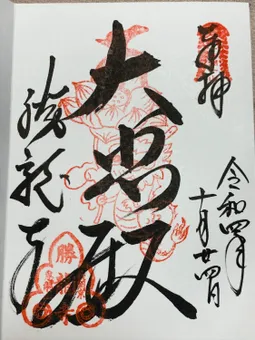 奉拝
令和四年
十月廿四日
大黒殿
勝龍寺
勝